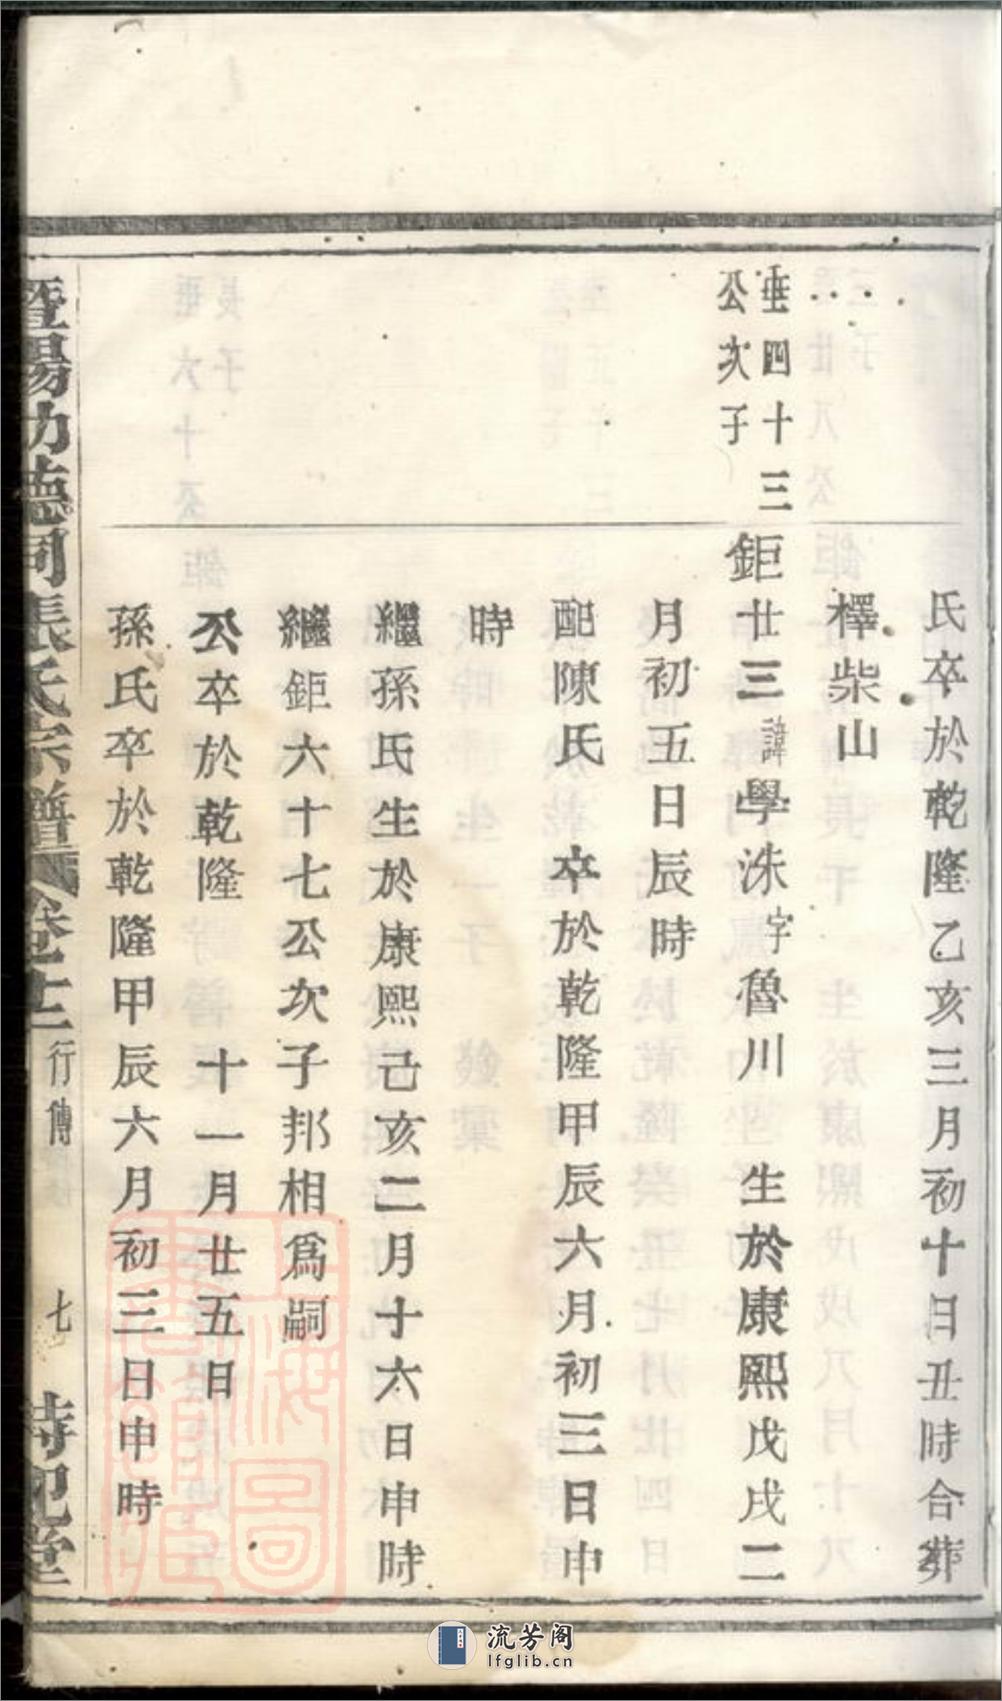 氏卒於乾隆乙亥三月初十日丑時合葬
檡柴山
垂四十三
公次子
鉅廿三諱學洙字魯川　生於康熙戊戌二
月初五日辰時
配陳氏　卒於乾隆甲辰六月初三日申
時
繼孫氏生於康熙己亥二月十六日申時
繼鉅六十七公次子邦相爲嗣
公卒於乾隆　　十一月廿五日
孫氏卒於乾隆甲辰六月初三日申時
暨陽功德祠張氏宗譜　卷之十二　行傳　七
上海圖書館藏
流芳阁
lfglib.cn